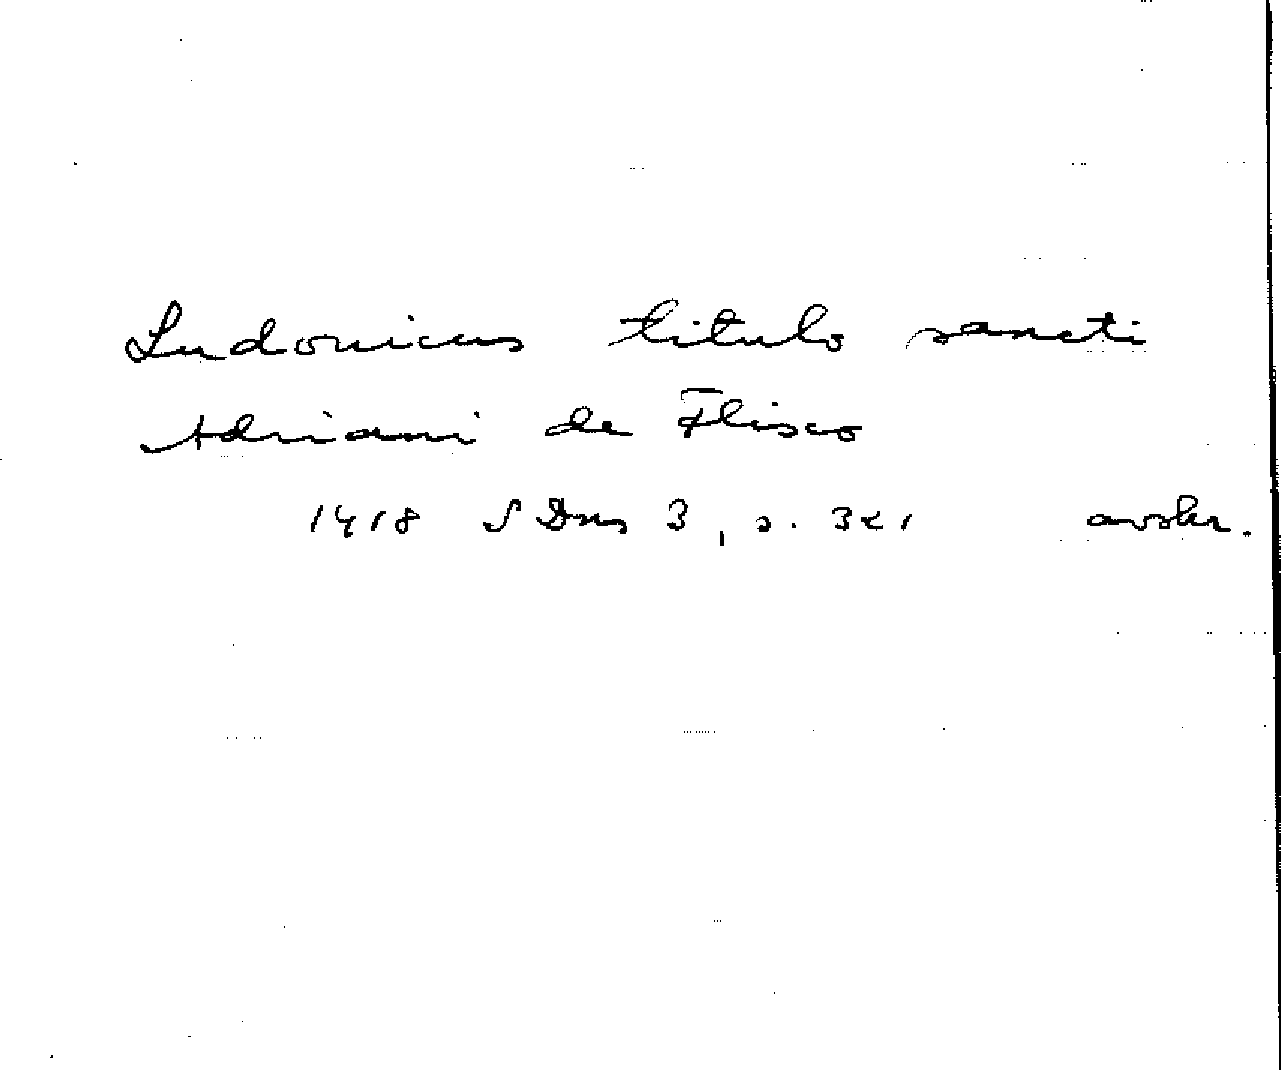 Ludouicus titulo sancti
Adriani de Flisco
1418 SDns 3, s. 321 avskr.